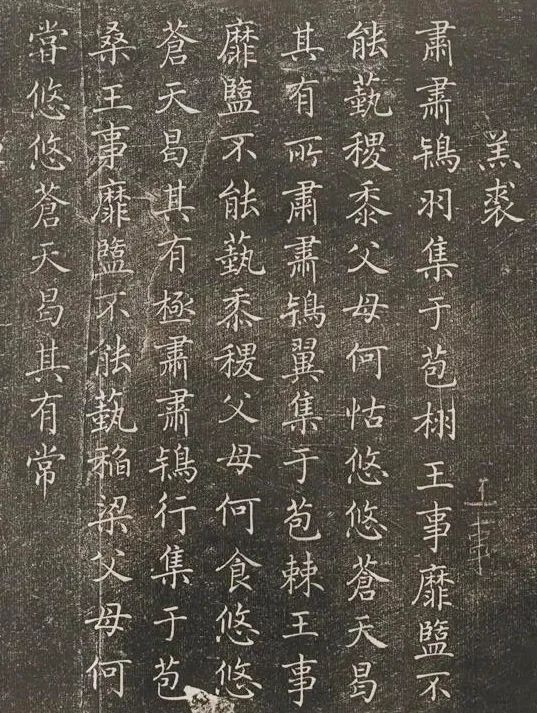 羔裘
肅肅鴇羽集于苞栩王事靡盬不
能蓺稷黍父母何怙悠悠蒼天曷
其有所肅肅鴇翼集于苞棘王事
靡盬不能蓺黍稷父母何食悠悠
蒼天曷其有極肅肅鴇行集于苞
桑王事靡盬不能蓺稻梁父母何
甞悠悠蒼天曷其有常